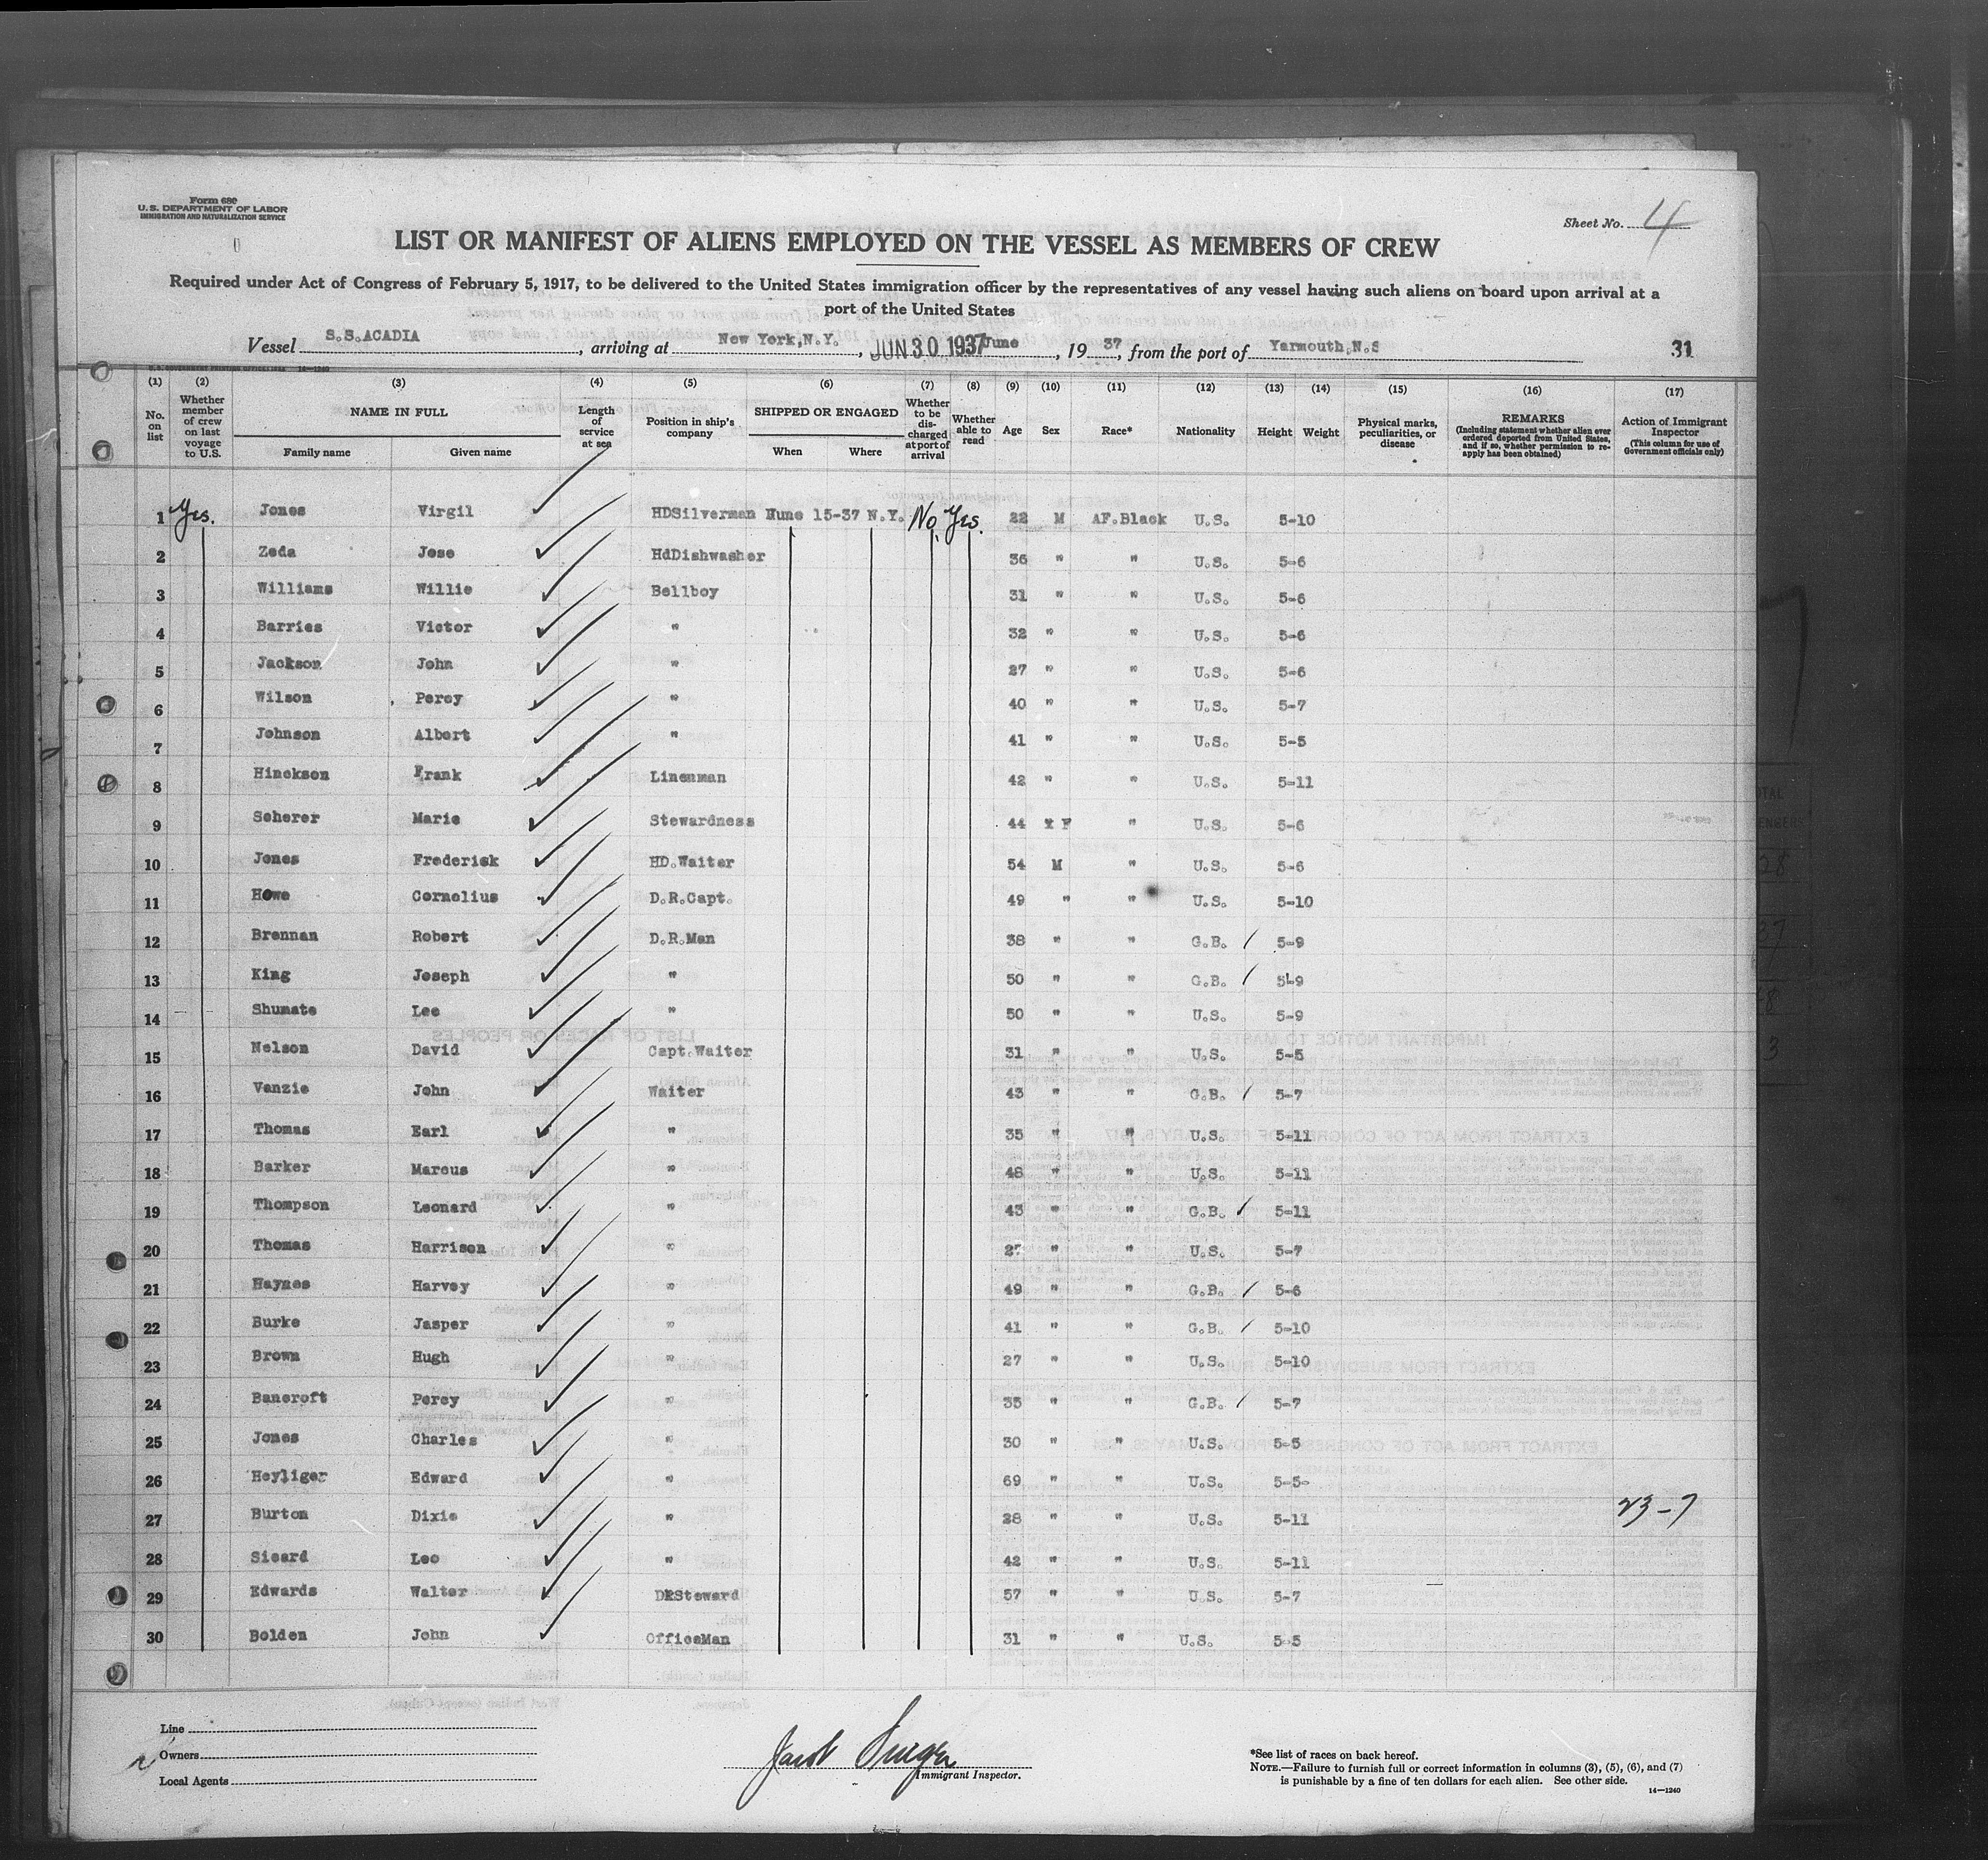 Form 680
U. S. DEPARTMENT OF LABOR
IMMIGRATION AND NATURALIZATION SERVICE
Sheet No. 4
LIST OR MANIFEST OF ALIENS EMPLOYED ON THE VESSEL AS MEMBERS OF CREW
Required under Act of Congress of February 5, 1917, to be delivered to the United States immigration officer by the representatives of any vessel having such aliens on board upon arrival at a
port of the United States
Vessel S.S.ACADIA, arriving at New York,N.Y., JUN 30 1937 June, 19 37, from the port of Yarmouth,N.S 31
14—1240
(1) (2) (3) (4) (5) (6) (7) (8) (9) (10) (11) (12) (13) (14) (15) (16) (17)
No. on list Whether member of crew on last voyage to U.S. NAME IN FULL Family name Given name Length of service at sea Position in ship's company SHIPPED OR ENGAGED When Where Whether to be discharged at port of arrival Whether able to read Age Sex Race* Nationality Height Weight Physical marks, peculiarities, or disease REMARKS (Including statement whether alien ever ordered deported from United States, and if so, whether permission to reapply has been obtained) Action of Immigrant Inspector (This column for use of Government officials only)
1 Yes. Jones Virgil HDSilverman June 15-37 N.Y. No Yes. 22 M AF.Black U.S. 5-10
2 Zeda Jose HdDishwasher 36 " " U.S. 5-6
3 Williams Willie Bellboy 31 " " U.S. 5-6
4 Barries Victor " 32 " " U.S. 5-6
5 Jackson John " 27 " " U.S. 5-6
6 Wilson Percy " 40 " " U.S. 5-7
7 Johnson Albert " 41 " " U.S. 5-5
8 Hinckson Frank Linenman 42 " " U.S. 5-11
9 Scherer Marie Stewardness 44 F " U.S. 5-6
10 Jones Frederick HD.Waiter 54 M " U.S. 5-6
11 Howe Cornelius D.R.Capt. 49 " " U.S. 5-10
12 Brennan Robert D.R.Man 38 " " G.B. 5-9
13 King Joseph " 50 " " G.B. 5-9
14 Shumate Lee " 50 " " U.S. 5-9
15 Nelson David Capt.Waiter 31 " " U.S. 5-5
16 Vanzie John Waiter 43 " " G.B. 5-7
17 Thomas Earl " 35 " " U.S. 5-11
18 Barker Marcus " 48 " " U.S. 5-11
19 Thompson Leonard " 43 " " G.B. 5-11
20 Thomas Harrison " 27 " " U.S. 5-7
21 Haynes Harvey " 49 " " G.B. 5-6
22 Burke Jasper " 41 " " G.B. 5-10
23 Brown Hugh " 27 " " U.S. 5-10
24 Bancroft Percy " 35 " " G.B. 5-7
25 Jones Charles " 30 " " U.S. 5-5
26 Heyliger Edward " 69 " " U.S. 5-5-
27 Burton Dixie " 28 " " U.S. 5-11 23-7
28 Sicard Leo " 42 " " U.S. 5-11
29 Edwards Walter DRSteward 57 " " U.S. 5-7
30 Bolden John OfficeMan 31 " " U.S. 5-5
Line
Owners
Local Agents
Jacob
Immigrant Inspector.
*See list of races on back hereof.
NOTE.—Failure to furnish full or correct information in columns (3), (5), (6), and (7)
is punishable by a fine of ten dollars for each alien. See other side.
14—1240